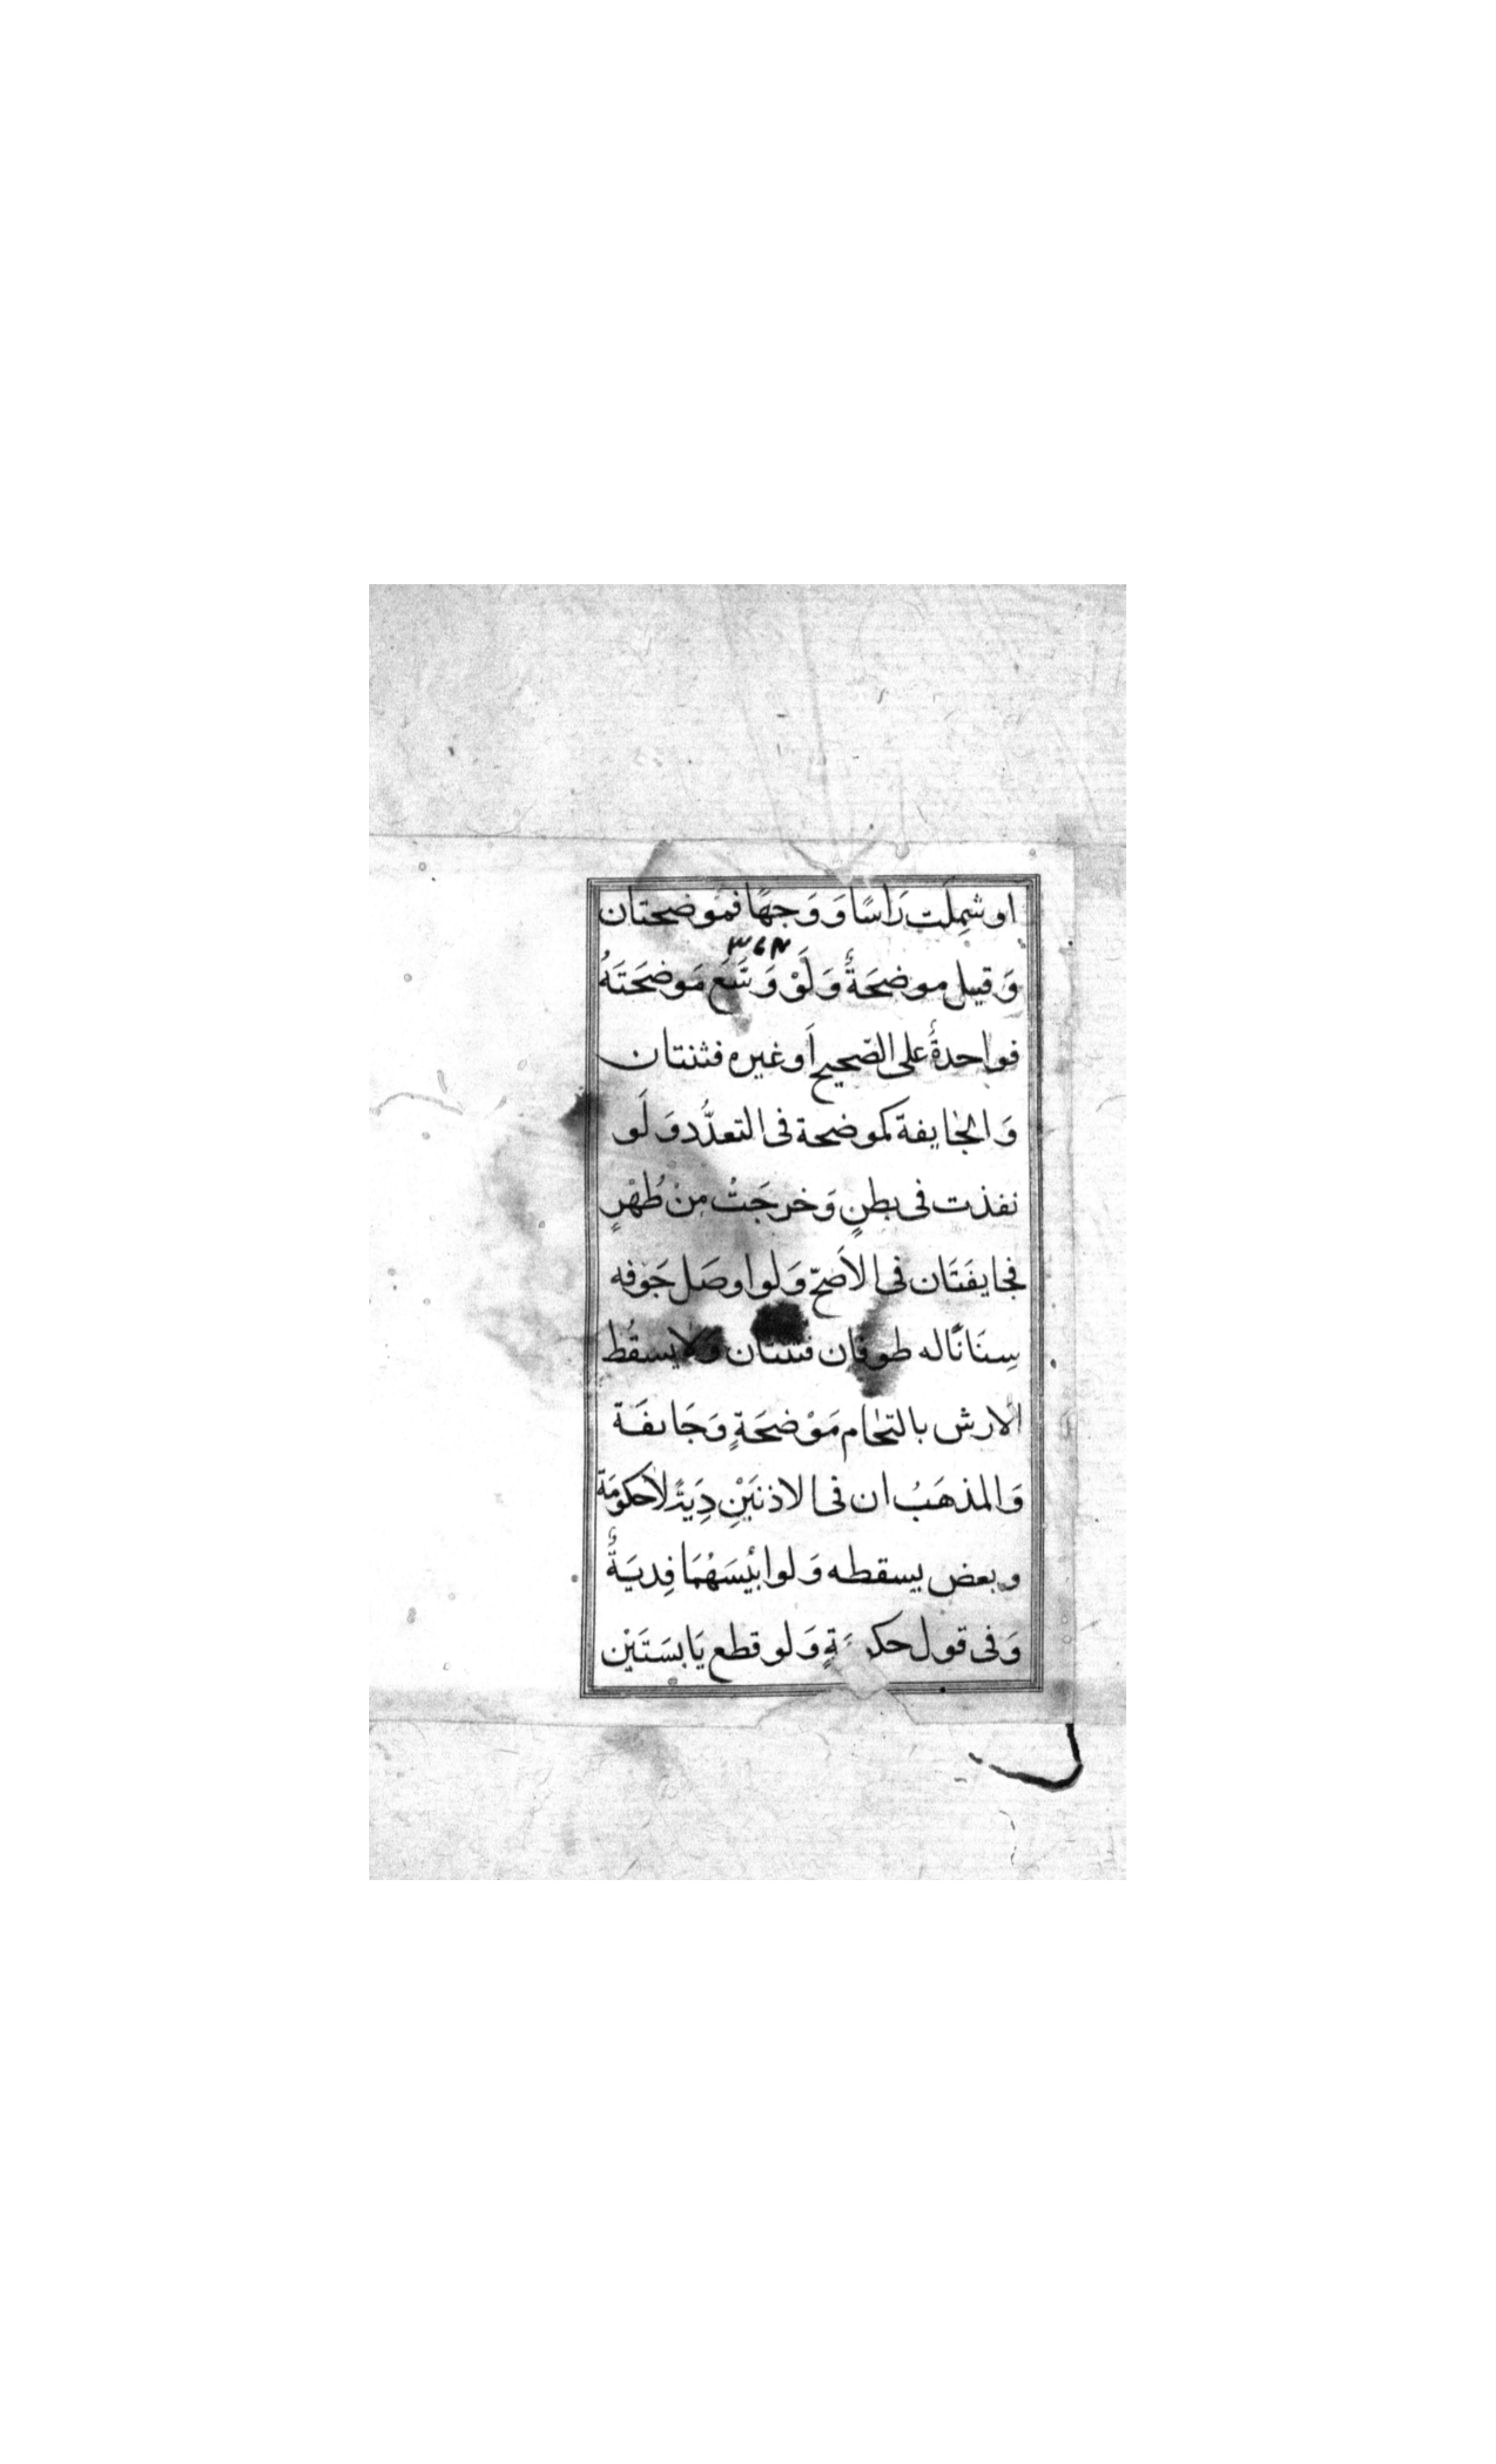 او شمِلَت رَاسًا وَ وَجهًا فمَوضحتان
وَ قيل موضحَةٌ وَ لَوْ وَسَّعَ مَوضحَتَهُ
فواحدةٌ على الصّحيح اَو غيره فثنتان
وَ الجايفة كموضحة فى التعدُّد وَ لَو
نفذت فى بطنٍ وَ خرجَتْ مِنْ طُهْرٍ
فجايفَتَان فى الاَصحّ وَ لوا وصَل جَوفه
سِنَانًا له طوفان فثنتان وَلايسقُط
الارش بالتحام مَوْضحَةٍ وَجَايفَة
وَ المذهَبُ ان فى الاذنَيْنِ دِيَةً لاحكومَة
و بعض بيسقطه وَ لوا يْيسَهُمَا فِديَةٌ
وَ فى قول وَ لو قطع يَابسَتَيْن